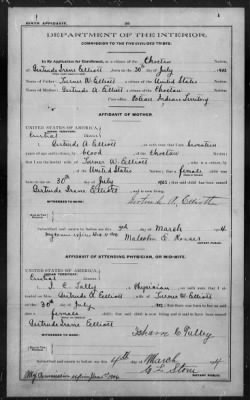 BIRTH AFFIDAVIT.
DEPARTMENT OF THE INTERIOR.
COMMISSION TO THE FIVE CIVILIZED TRIBES.
In Re Application for Enrollment, as a citizen of the Choctaw Nation,
of Gertrude Irene Elliott, born on the 30th day of July, 190
Name of Father: Turner W Elliott a citizen of the United States Nation.
Name of Mother: Gertrude A Elliott a citizen of the Choctaw Nation.
Post-office, Indian Territory
AFFIDAVIT OF MOTHER.
UNITED STATES OF AMERICA,
INDIAN TERRITORY,
Central District.
I, Gertrude A Elliott, on oath state that I am
years of age and a citizen, by blood, of the Choctaw Nation;
that I am the lawful wife of Turner W Elliott, who is a citizen, by
of the United States Nation; that a female child
was born to me on 30th day of July, 190; that said child has been named
Gertrude Irene Elliott, and is now living.
Gertrude A. Elliott
WITNESSES TO MARK:
Subscribed and sworn to before me this day of March, 190
Malcolm E.
NOTARY PUBLIC.
AFFIDAVIT OF ATTENDING PHYSICIAN, OR MID-WIFE.
UNITED STATES OF AMERICA,
INDIAN TERRITORY,
Central District.
I, J. C. Talley, a Physician, on oath state that I
attended on Mrs. Gertrude A Elliott, wife of Turner W Elliott
on the 30th day of July, 190; that there was born to her on said date a
female child; that said child is now living and is said to have been named
Gertrude Irene Elliott
C Talley
WITNESSES TO MARK:
Subscribed and sworn to before me this 4th day of March, 190
NOTARY PUBLIC.
My Commission expires